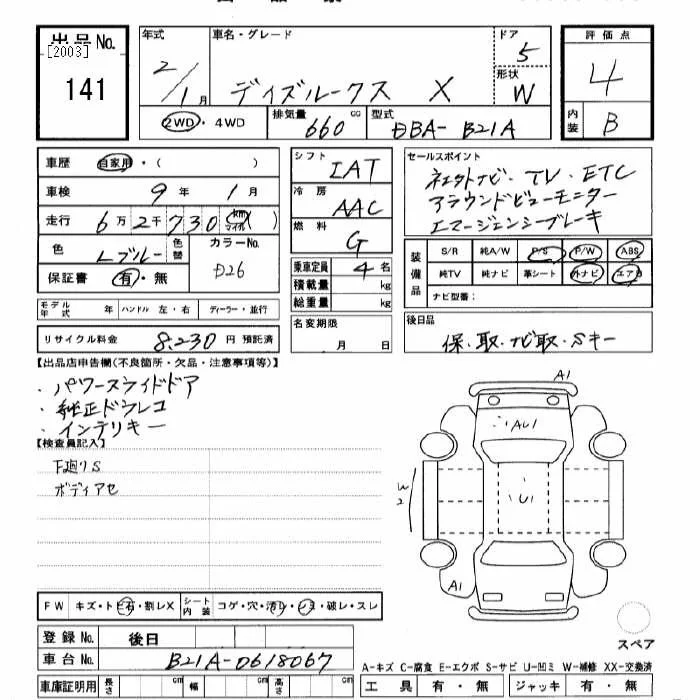 出品No. [2003] 141
年式 2/1月
車名・グレード デイズルークス X
ドア 5
形状 W
評価点 4
内装 B
2WD・4WD
排気量 660 cc
型式 DBA-B21A
車歴 自家用・( )
車検 9年 1月
走行 6万2千730 (km マイル)
色 Lブルー 色替
カラーNo. D26
保証書 有・無
モデル年式 年 ハンドル 左・右 ディーラー・並行
リサイクル料金 8,230 円 預託済
シフト IAT
冷房 AAC
燃料 G
乗車定員 4 名
積載量 kg
総重量 kg
名変期限 月 日
セールスポイント
ネエクトナビ・TV・ETC
アラウンドビューモニター
エマージェンシーブレーキ
装備品
S/R 純A/W P/S P/W ABS
純TV 純ナビ 革シート 外ナビ エアB
ナビ型番:
後日品
保・取・ナビ取・Sキー
【出品店申告欄(不良箇所・欠品・注意事項等)】
・パワースライドドア
・純正ドラレコ
・インテリキー
【検査員記入】
下廻りS
ボディアセ
A1
AU1
U1
W2
A1
スペア
FW キズ・トビ石・割レX
シート内装 コゲ・穴・汚レ・シミ・破レ・スレ
登録No. 後日
車台No. B21A-0618067
車庫証明用 長さ cm 幅 cm 高さ cm
A-キズ C-腐食 E-エクボ S-サビ U-凹ミ W-補修 XX-交換済
工具 有・無 ジャッキ 有・無